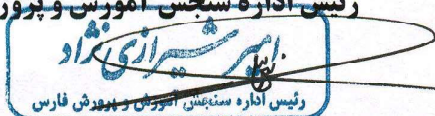 رئیس اداره سنجش آموزش و پرور
امیر شیرازی نژاد
رئیس اداره سنجش آموزش و پرورش فارس